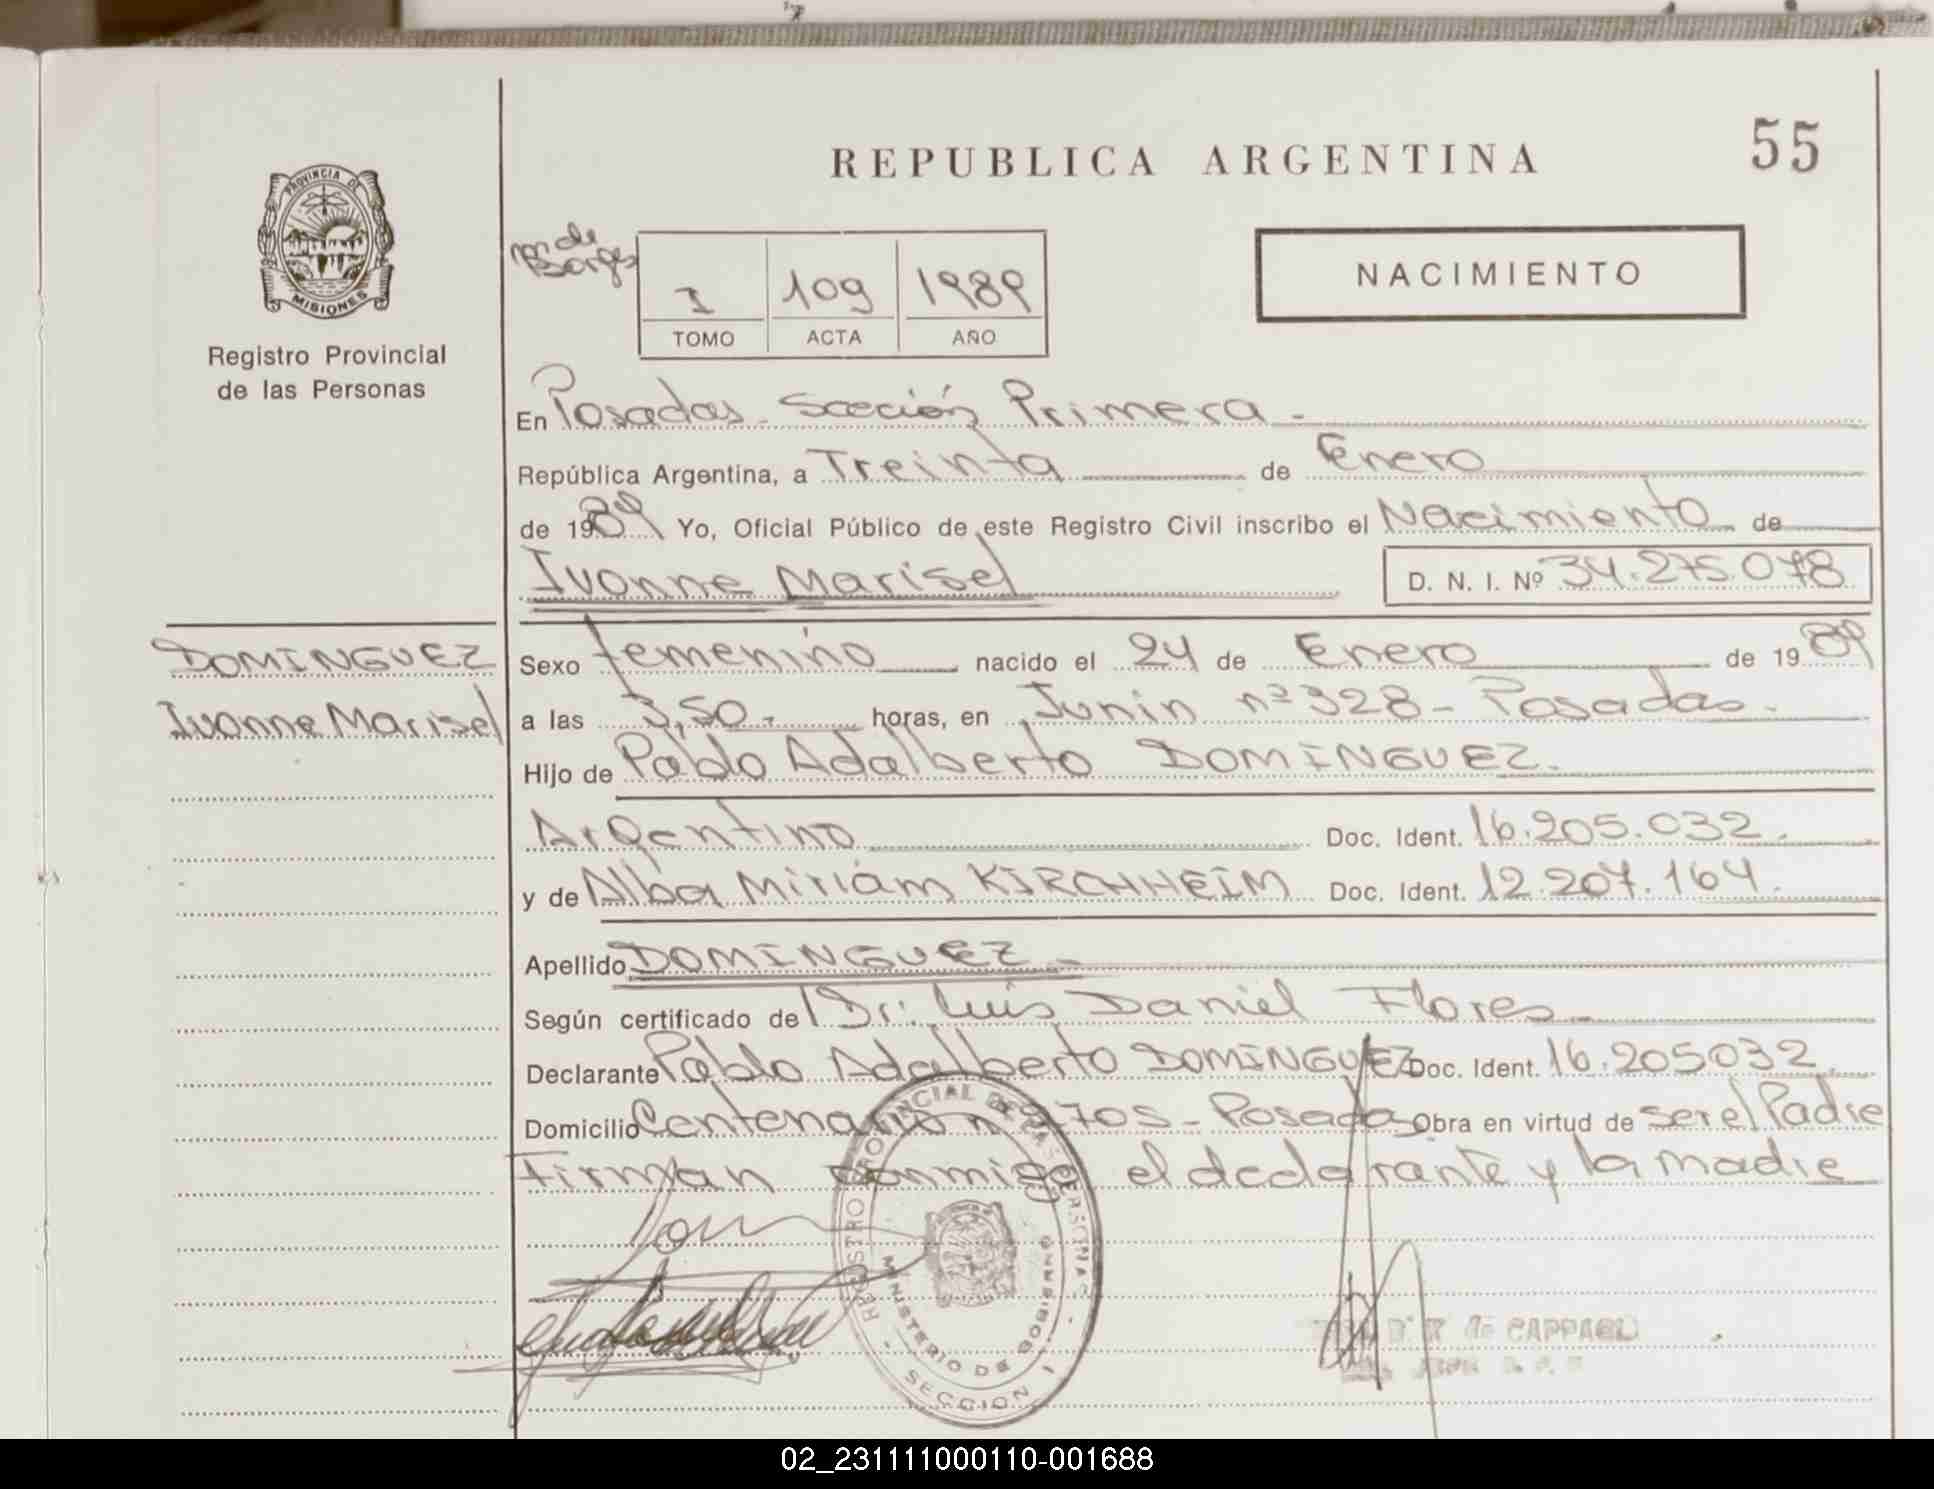 REPUBLICA ARGENTINA
55
PROVINCIA DE
MISIONES
Registro Provincial
de las Personas
m de
Borges
I 109 1989
TOMO ACTA AÑO
NACIMIENTO
En Posadas - Sección Primera -
República Argentina, a Treinta de Enero
de 1989 Yo, Oficial Público de este Registro Civil inscribo el Nacimiento de
Ivonne Marisel D. N. I. Nº 34.275.078
DOMINGUEZ
Ivonne Marisel
Sexo femenino nacido el 24 de Enero de 1989
a las 3,50 - horas, en Junin nº 328 - Posadas.
Hijo de Pablo Adalberto DOMINGUEZ.
Argentino Doc. Ident. 16.205.032.
y de Alba Miriam KIRCHHEIM Doc. Ident. 12.207.164.
Apellido DOMINGUEZ -
Según certificado de Dr: Luis Daniel Flores -
Declarante Pablo Adalberto DOMINGUEZ Doc. Ident. 16.205032
Domicilio Centenario nº 2705 - Posadas Obra en virtud de ser el Padre
Firman conmigo el declarante y la madre
REGISTRO PROVINCIAL DE LAS PERSONAS
MINISTERIO DE GOBIERNO
SECCION 1
de CAPPAGLI
02_231111000110-001688